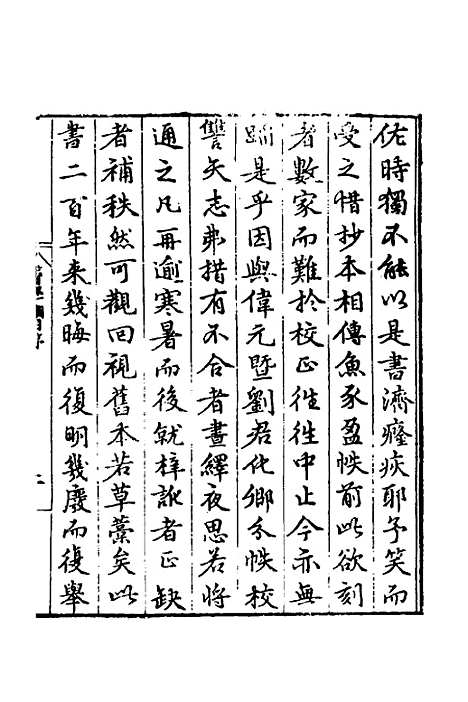 佐時獨不能以是書濟癃疾耶予笑而
受之惜抄本相傳魚豕盈帙前此欲刻
者數家而難於校正徃徃中止今亦無
踰是乎因與偉元暨劉君化卿分帙校
讐矢志弗措有不合者晝繹夜思若將
通之凡再逾寒暑而後就梓訛者正缺
者補秩然可觀回視舊本若草藁矣此
書二百年來幾晦而復明幾廢而復舉